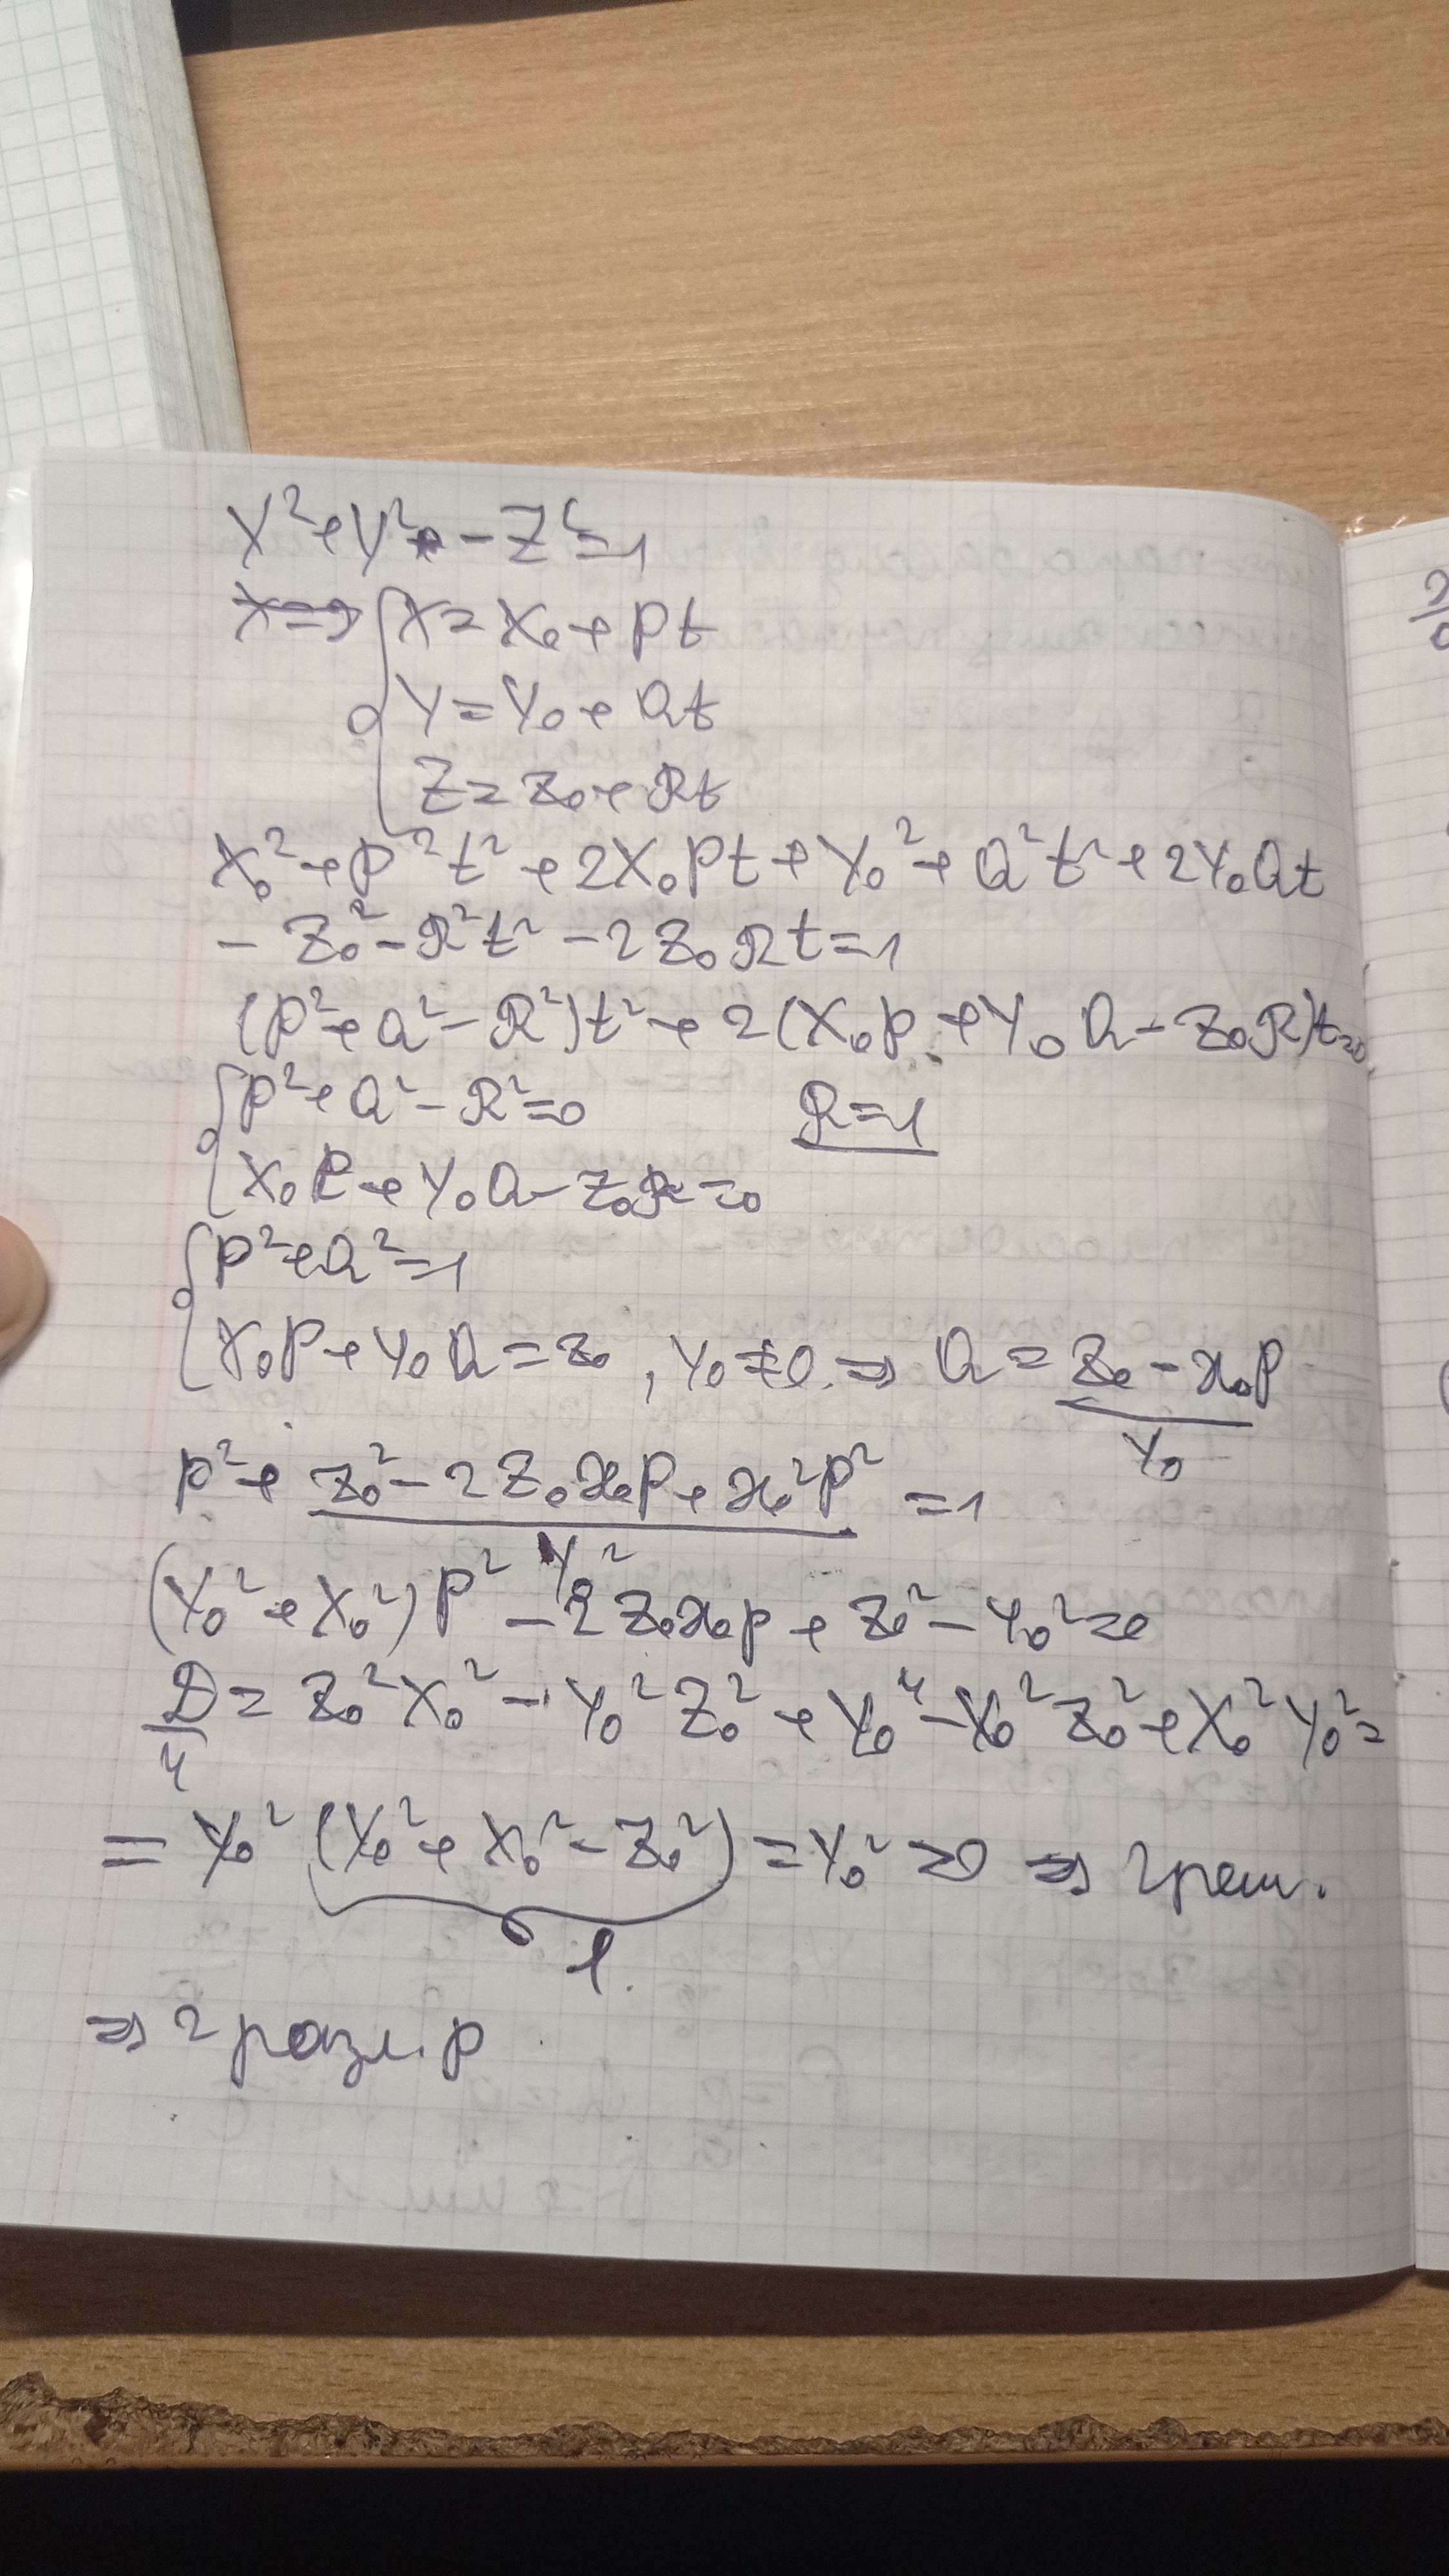 X² + Y² - Z² = 1
X = X₀ + Pt
Y = Y₀ + Qt
Z = Z₀ + Rt
X₀² + P²t² + 2X₀Pt + Y₀² + Q²t² + 2Y₀Qt
- Z₀² - R²t² - 2Z₀Rt = 1
(P² + Q² - R²)t² + 2(X₀P + Y₀Q - Z₀R)t = 0
P² + Q² - R² = 0 R = 1
X₀P + Y₀Q - Z₀R = 0
P² + Q² = 1
X₀P + Y₀Q = Z₀, Y₀ ≠ 0 ⇒ Q = (Z₀ - x₀P)/Y₀
P² + (Z₀² - 2Z₀x₀P + x₀²P²)/Y₀² = 1
(Y₀² + X₀²)P² - 2Z₀x₀P + Z₀² - Y₀² = 0
D/4 = Z₀²X₀² - Y₀²Z₀² + Y₀⁴ - X₀²Z₀² + X₀²Y₀² =
= Y₀²(Y₀² + X₀² - Z₀²) = Y₀² > 0 ⇒ 2 реш.
1
⇒ 2 разл. P